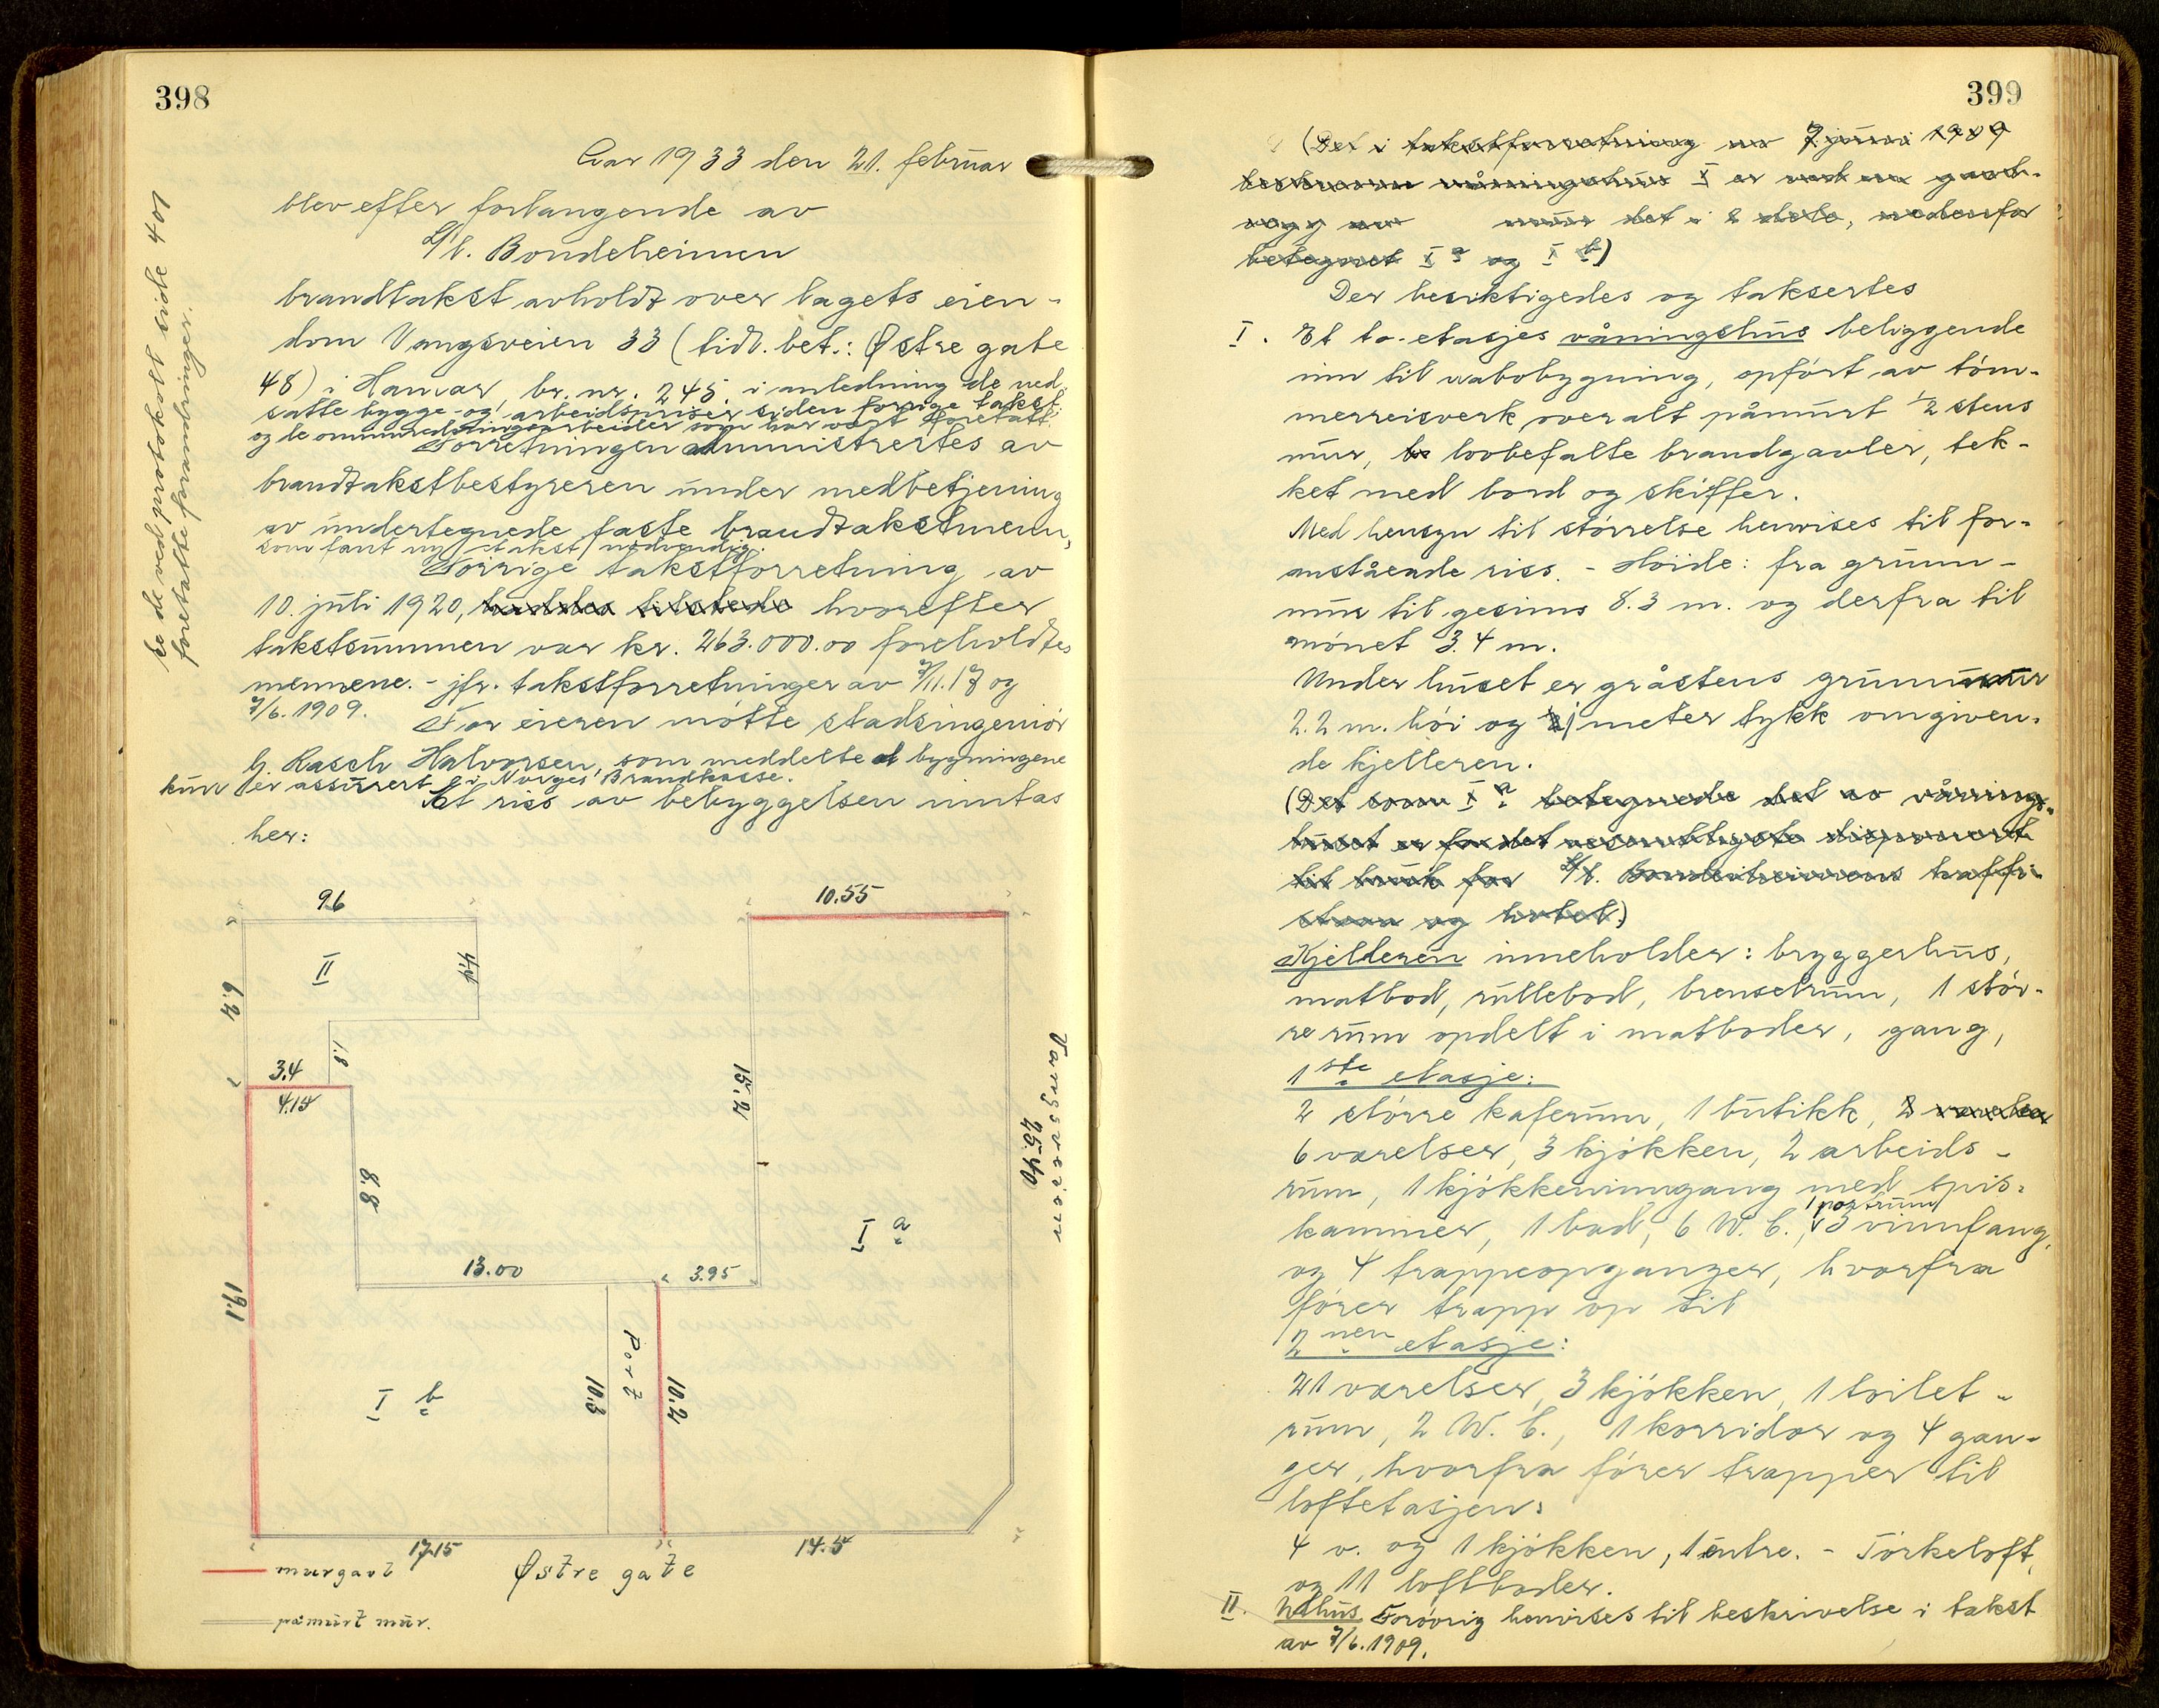 398
Aar 1933 den 21. februar
blev efter forlangende av
L/l. Bondeheimen
brandtakst avholdt over lagets eien-
dom Vangsveien 33 (tidl. bet.: Østre gate
48) i Hamar, br. nr. 245. i anledning de ned-
satte bygge- og arbeidspriser siden forrige takst
og de ominnredningsarbeider som har vært foretatt.
Forretningen administrertes av
brandtakstbestyreren under medbetjening
av undertegnede faste brandtakstmenn,
som fant ny takst nødvendig.
Forrige takstforretning av
10. juli 1920, haddes tilstede hvorefter
takstsummen var kr. 263.000.00 foreholdtes
mennene. - jfr. takstforretninger av 7/11.17 og
7/6.1909.
For eieren møtte stadsingeniør
H. Rasch Halvorsen, som meddelte at bygningene
kun er assurert i Norges Brandkasse.
Et riss av bebyggelsen inntas
her:
Se de ved protokoll side 401
foretatte forandringer.
9.6
II
4.4
6.2
1.8
3.4
4.15
8.8
19.1
13.00
3.95
10.55
15.2
Vangsveien
25.40
I a
I b
Port
10.3
10.2
17.15
Østre gate
14.5
murgavl
påmurt mur.
399
(Det i takstforretning av 7 juni 1909
beskrevne våningshus I er ved en gavl-
vegg av mur delt i 2 dele, nedenfor
betegnet I a og I b)
Der besiktigedes og taksertes
I. Et to-etasjes våningshus beliggende
inn til nabobygning, opført av tøm-
merreisverk, overalt påmurt 1/2 stens
mur, lovbefalte brandgavler, tek-
ket med bord og skiffer.
Med hensyn til størrelse henvises til for-
anstående riss. - Høide: fra grunn-
mur til gesims 8.3 m. og derfra til
mønet 3.4 m.
Under huset er gråstens grunnmur
2.2 m. høi og 1 meter tykk omgiven-
de kjelleren.
(Det som I a betegnede del av vånings-
huset er for det vesentligste disponert
til bruk for L/l. Bondeheimens kaffi-
stova og hotel.)
Kjelleren inneholder: bryggerhus,
matbod, rullebod, brenselrum, 1 stør-
re rum opdelt i matboder, gang,
1ste etasje:
2 større kaferum, 1 butikk, 8 værelser
6 værelser, 3 kjøkken, 2 arbeids-
rum, 1 kjøkkeninngang med spis-
kammer, 1 bad, 6 W. C., 1 portrum 3 vinnfang,
og 4 trappeopganger, hvorfra
fører trapp op til
2nen etasje:
21 værelser, 3 kjøkken, 1 toilet-
rum, 2 W. C., 1 korridor og 4 gan-
ger, hvorfra fører trapper til
loftetasjen:
4 v. og 1 kjøkken, 1 entre. - Tørkeloft,
og 11 loftboder.
II. Uthus Forøvrig henvises til beskrivelse i takst
av 7/6.1909.